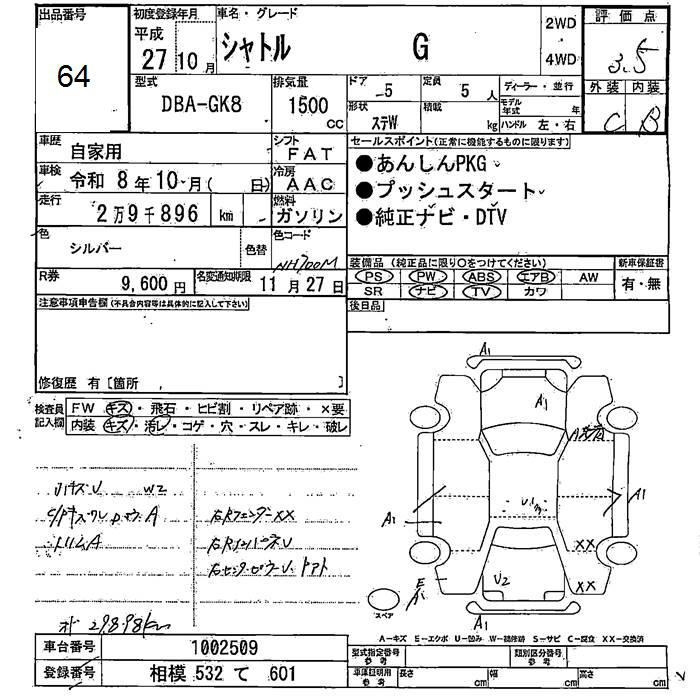 出品番号
64
初度登録年月
平成
27 10 月
車名・グレード
シャトル G
2WD
4WD
評価点
3.5
外装 内装
C B
型式
DBA-GK8
排気量
1500
CC
ドア
5
定員
5 人
ディーラー・並行
形状
ステW
積載
kg
モデル年式 年
ハンドル 左・右
車歴
自家用
シフト
FAT
車検
令和 8年10月( 日)
冷房
AAC
走行
2万9千896 km
燃料
ガソリン
色
シルバー
色替
色コード
NH700M
R券
9,600 円
名変通知期限
11月27日
セールスポイント(正常に機能するものに限ります)
●あんしんPKG
●プッシュスタート
●純正ナビ・DTV
装備品(純正品に限り○をつけてください)
PS PW ABS エアB AW
SR ナビ TV カワ
新車保証書
有・無
後日品
注意事項申告欄(不具合内容等は具体的に記入して下さい)
修復歴 有[箇所 ]
検査員記入欄
FW キズ・飛石・ヒビ割・リペア跡・×要
内装 キズ・汚レ・コゲ・穴・スレ・キレ・破レ
W2
右Rフェンダー××
トリムA
右RインパネU
29898km
A1
A1
A1
A1
A1
U2
××
××
E
A1
スペア
A1
A−キズ E−エクボ U−凹み W−補修跡 S−サビ C−腐食 XX−交換済
車台番号
1002509
登録番号
相模 532 て 601
型式指定番号
参考
類別区分番号
参考
車庫証明用
参考
長さ cm
幅 cm
高さ cm